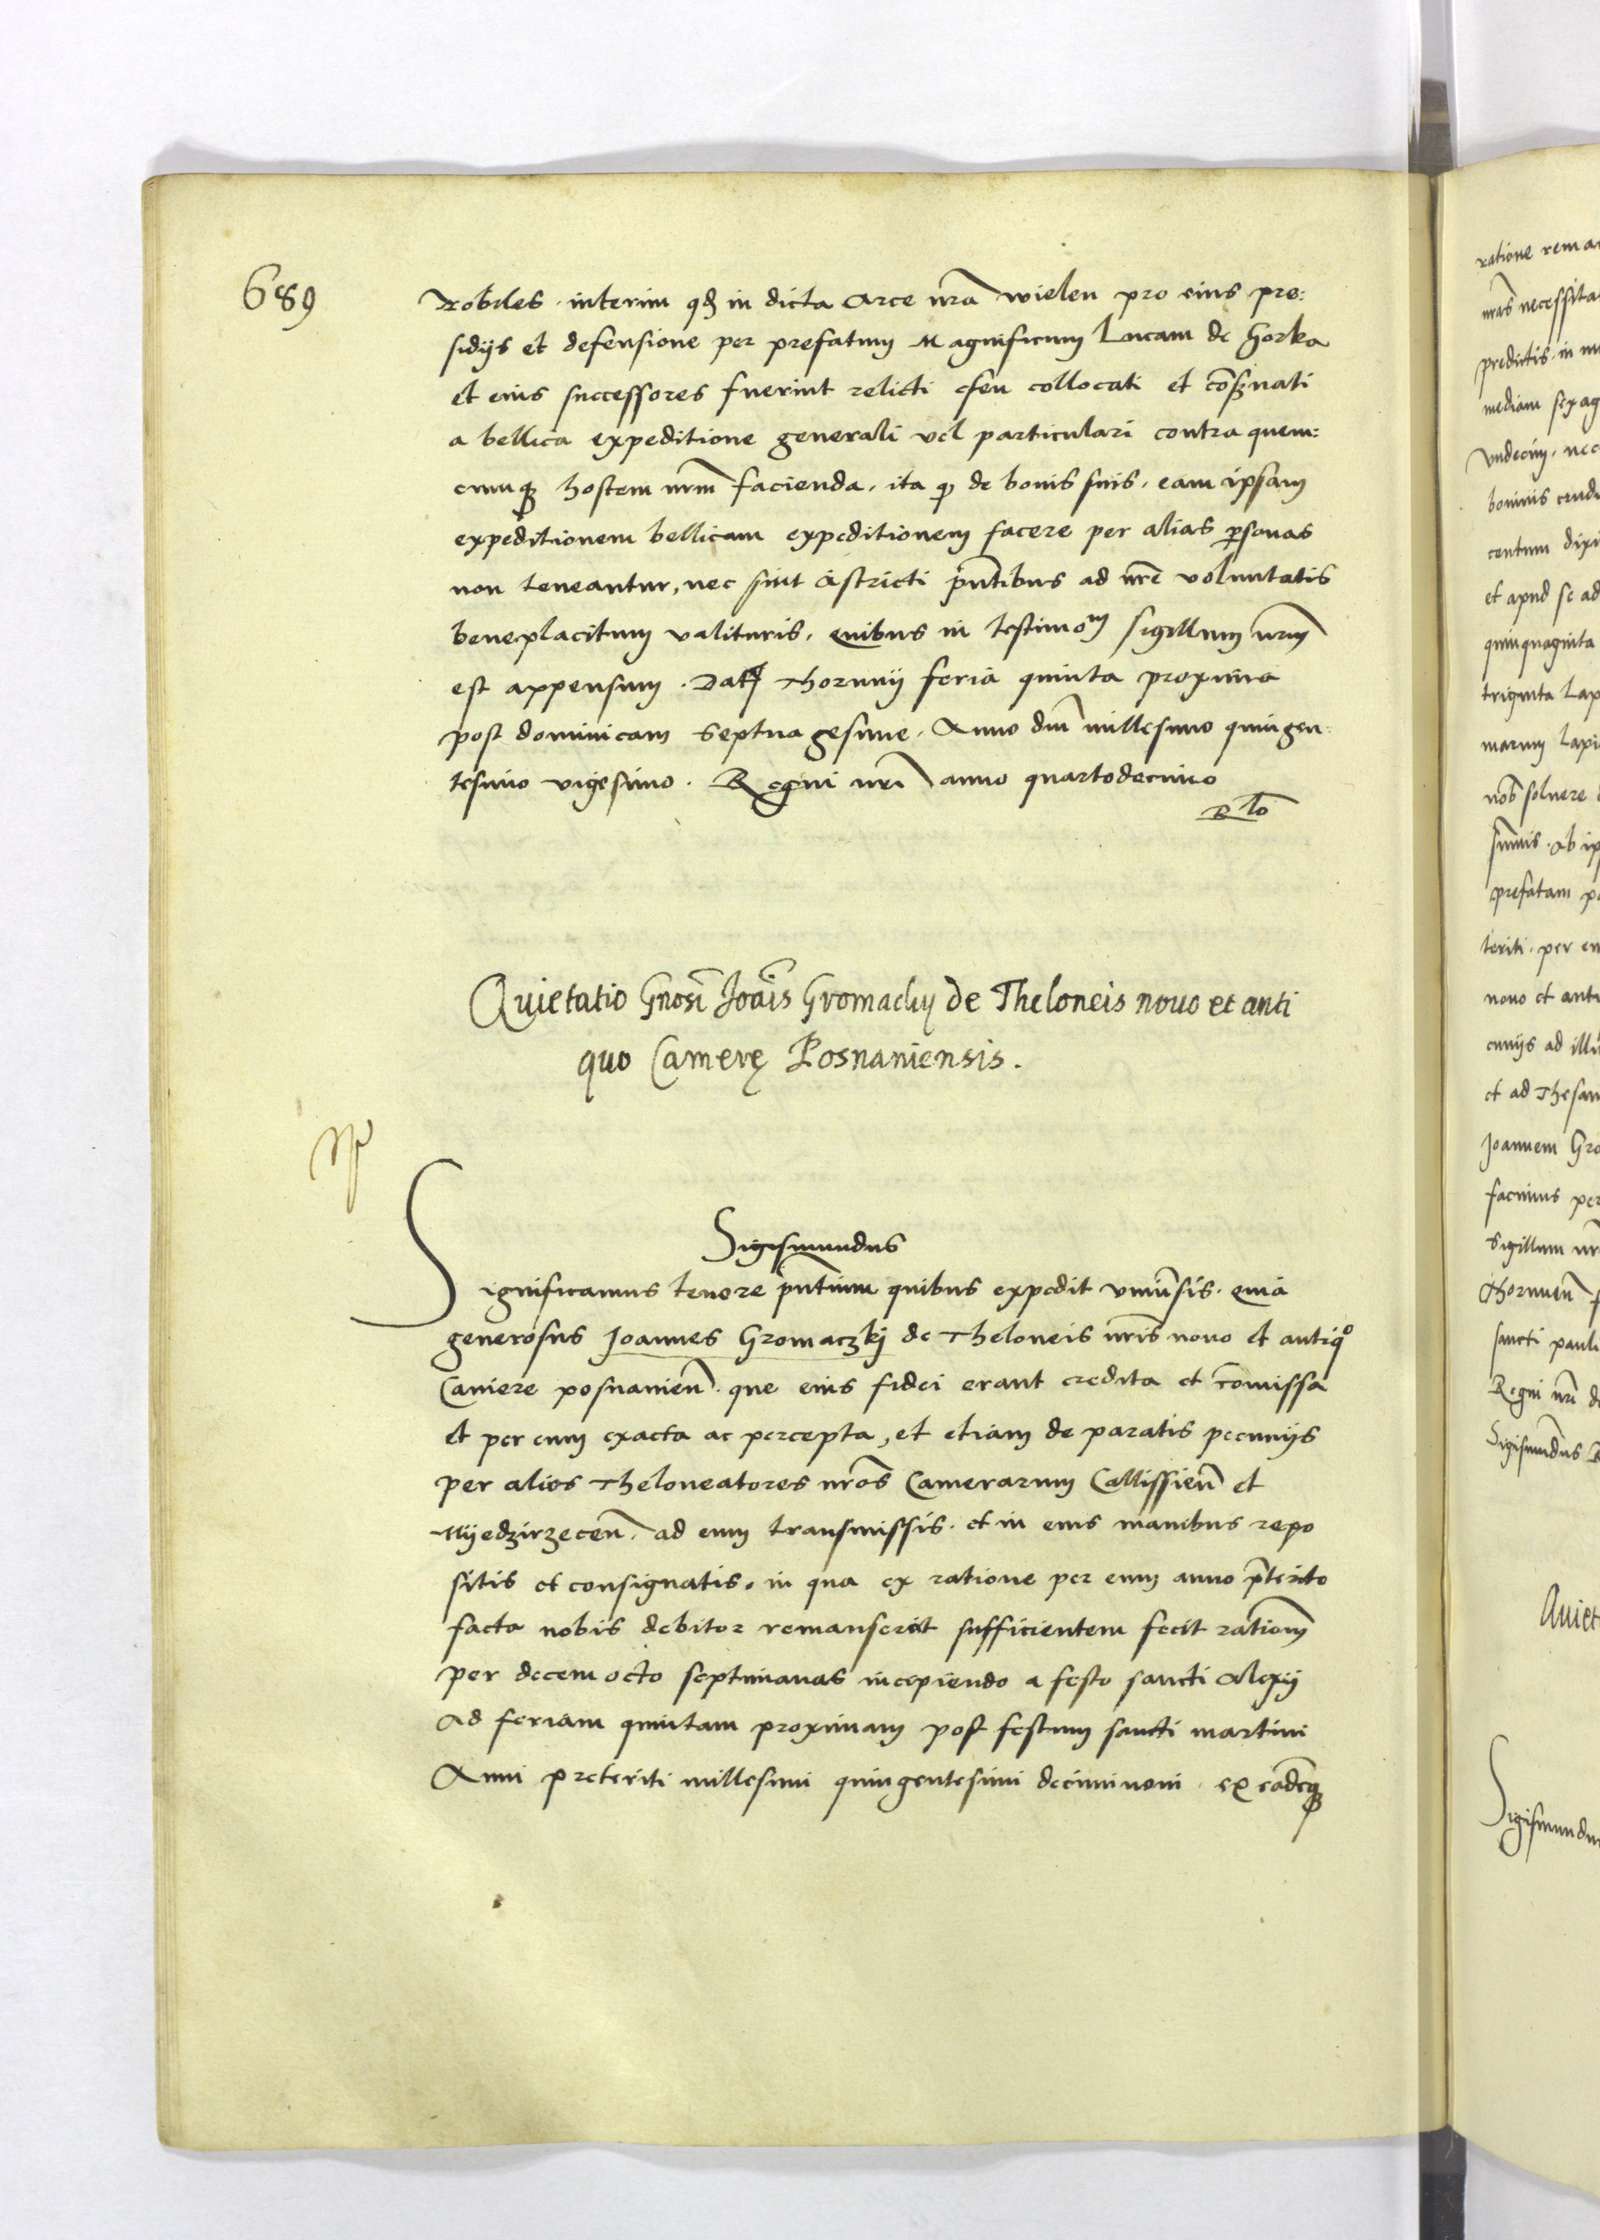 689
Nobiles. interim qđ in dicta Arce nrã wielen pro eius pre:
sidijs et defensione per prefatum Magnificum Lucam de Gorka
et eius successores fuerint relicti seu collocati et cõsignati
a bellica expeditione generali vel particulari contra quem:
cumqȝ hostem nrm̃ facienda, ita qɔ de bonis suis, eam ipsam
expeditionem bellicam expeditionem facere per alias psonas
non teneantur, nec sint astricti pñtibus ad nrẽ voluntatis
beneplacitum valituris, quibus in testimom̃ sigillum nrm̃
est appensum. Datȝ Thorunij feria quinta proxima
post dominicam Septuagesime, Anno dnĩ millesimo quingen:
tesimo vigesimo. Regni nrĩ anno quartodecimo
Rtõ
Quietatio Gnosĩ Joãis Gromaczkij de Theloneis nouo et anti
quo Camerę Posnaniensis.
Sigismundus
Significamus tenore pñtium quibus expedit vniũsis. quia
generosus Joannes Gromaczkij de Theloneis nrĩs nouo et antiqͦ
Camere posnanieñ. que eius fidei erant credita et cõmissa
et per eum exacta ac percepta, et etiam de paratis pecunijs
per alios Theloneatores nrõs Camerarum Callissieñ et
Myedzirzeceñ. ad eum transmissis. et in eius manibus repo
sitis et consignatis. in qua ex ratione per eum anno pr̃terito
facta nobis debitor remanserat sufficientem fecit rationm̃
per decem octo septimanas incipiendo a festo sancti Alexij
Ad feriam quintam proximam post festum sancti martini
Anni preteriti millesimi quingentesimi decimi noni. ex eadẽqȝ
ratione rema
nrãs necessita
predictis. in
mediam sexag
vndecim, nec
centum dixi
et apud se ad
quinquaginta
triginta Lap
marum lapi
nob̃ soluere
sum̃is. ab ip
prefatam
teriti. per eu
nouo et anti
cunijs ad illu
et ad Thesau
Joannem Gro
facimus per
Sigillum nr
Thorunẽ
sancti pauli
Regni nrĩ d
Sigismũdus R
Quiet
Sigismundu